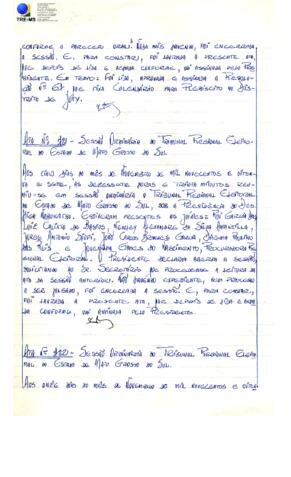 TRE-MS
conforme o parecer oral. Nada mais havendo, foi encerrada
a sessão. E, para constar, foi lavrada a presente ata,
que depois de lida e achada conforme, vai assinada pelo Pre-
sidente. Em tempo: foi lida, aprovada e assinada a
que fixa Calendário para Plebiscito no Dis-
trito de Juty.
Ata nº 720 - Sessão Ordinária do Tribunal Regional Eleito-
ral do Estado de Mato Grosso do Sul.
Aos dias do mês de novembro de mil novecentos e oiten-
ta e sete, às dezessete horas e trinta minutos reuniu-
se em sessão ordinária o Tribunal Regional Eleitoral
do Estado de Mato Grosso do Sul, sob a Presidência do Des.
Estiveram presentes os juízes: Rui Garcia Dias
Luiz Calixto de Bastos,
Jorge Antônio José Carlos Garcia,
e Garcia do Nascimento, Procurador Re-
gional Eleitoral. O Presidente declarou aberta a sessão,
Sr. Secretário que procedesse a leitura da
ata da sessão anterior. Não havendo expediente, nem processo
a ser julgado, foi encerrada a sessão. E, para constar,
foi lavrada a presente ata, que depois de lida e acha-
da conforme, vai assinada pelo Presidente.
Ata nº 721 - Sessão Ordinária do Tribunal Regional Eleito-
ral do Estado de Mato Grosso do Sul.
Aos onze dias do mês de novembro de mil novecentos e oiten-